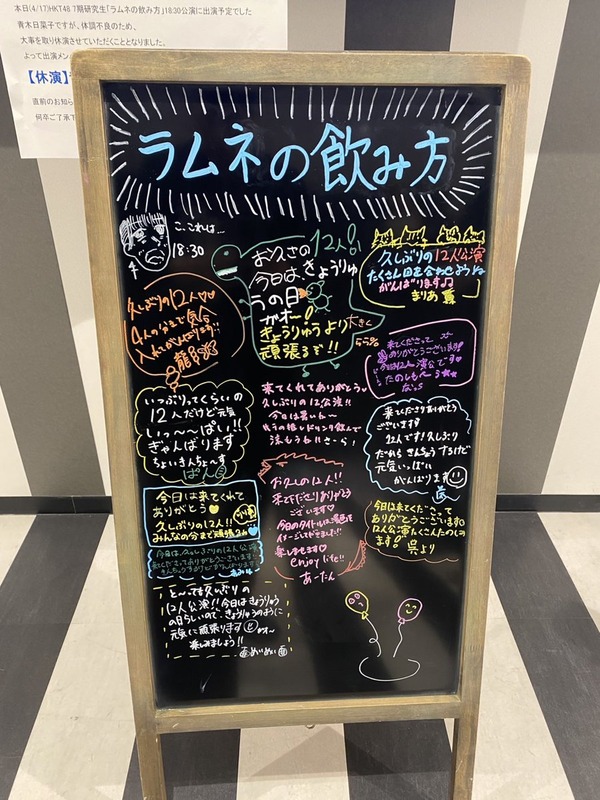 本日(4/17)HKT48 7期研究生「ラムネの飲み方」18:30公演に出演予定でした
青木日菜子ですが、体調不良のため、
大事を取り休演させていただくこととなりました。
よって出演メン
【休演】
直前のお知ら
何卒ご了承下
ラムネの飲み方
こ、これは…
18:30
お久さの12人!
今日は、きょうりゅ
うの日
ガオー!
きょうりゅうより大きく
頑張るぞ!!
久しぶりの12人公演
たくさん目を合わせようね
がんばります
まりあ
久しぶりの12人
4人の分まで気合
入れてがんばります!!
来てくださって
ありがとうございます
今日は12人公演です
たのしも〜
いつぶり?くらいの
12人だけど元気
いっ〜〜ぱい!!
ぎゃんばります
ちょいきんちょーす
来てくれてありがとう
久しぶりの12公演!!
今日は暑いね〜
ドリンク飲んで
来てくださりありがとう
ございます!
12人です!久しぶり
だから きんちょうするけど
元気いっぱい
がんばります
今日は来てくれて
ありがとう
久しぶりの12人!!
みんなの分まで頑張るね
お久の12人!!
来てくださりありがとう
ございます
今日のタイトルは
イメージしてかきました
楽しみます
enjoy life!!
あーたん
今日は来てくださって
ありがとうございます
12人公演たくさんたのしみ
ます! 呉より
今日は、久しぶりの12人公演
とーっても久しぶりの
12人公演!!今日はきょうりゅう
の日らしいので、きょうりゅうのように
元気に頑張ります ガオー
楽しみましょう!!
めいめい